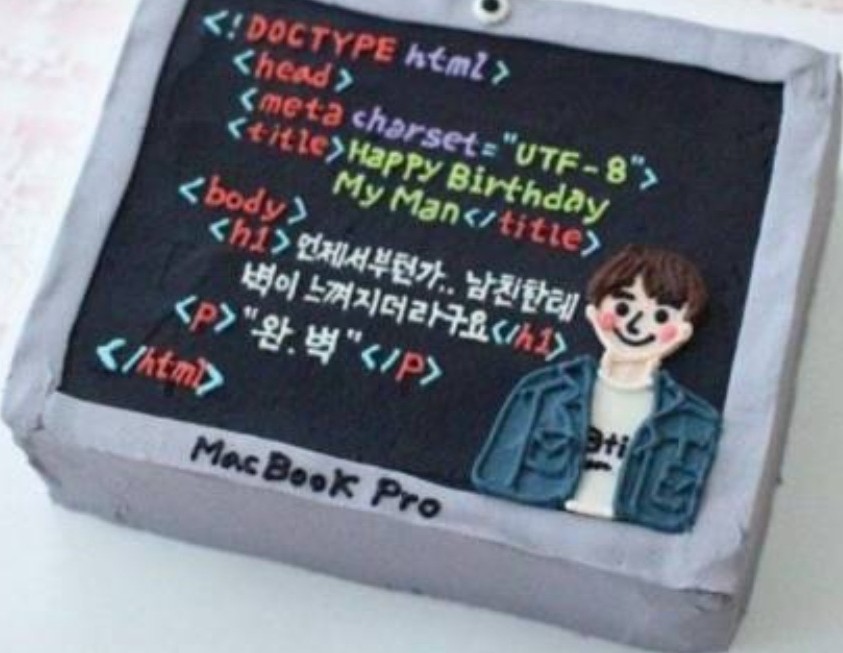 <!DOCTYPE html>
<head>
<meta charset="UTF-8">
<title>Happy Birthday
My Man</title>
<body>
<h1>언제서부턴가.. 남친한테
벽이 느껴지더라구요</h1>
<p>"완.벽"</p>
</html>
MacBook Pro